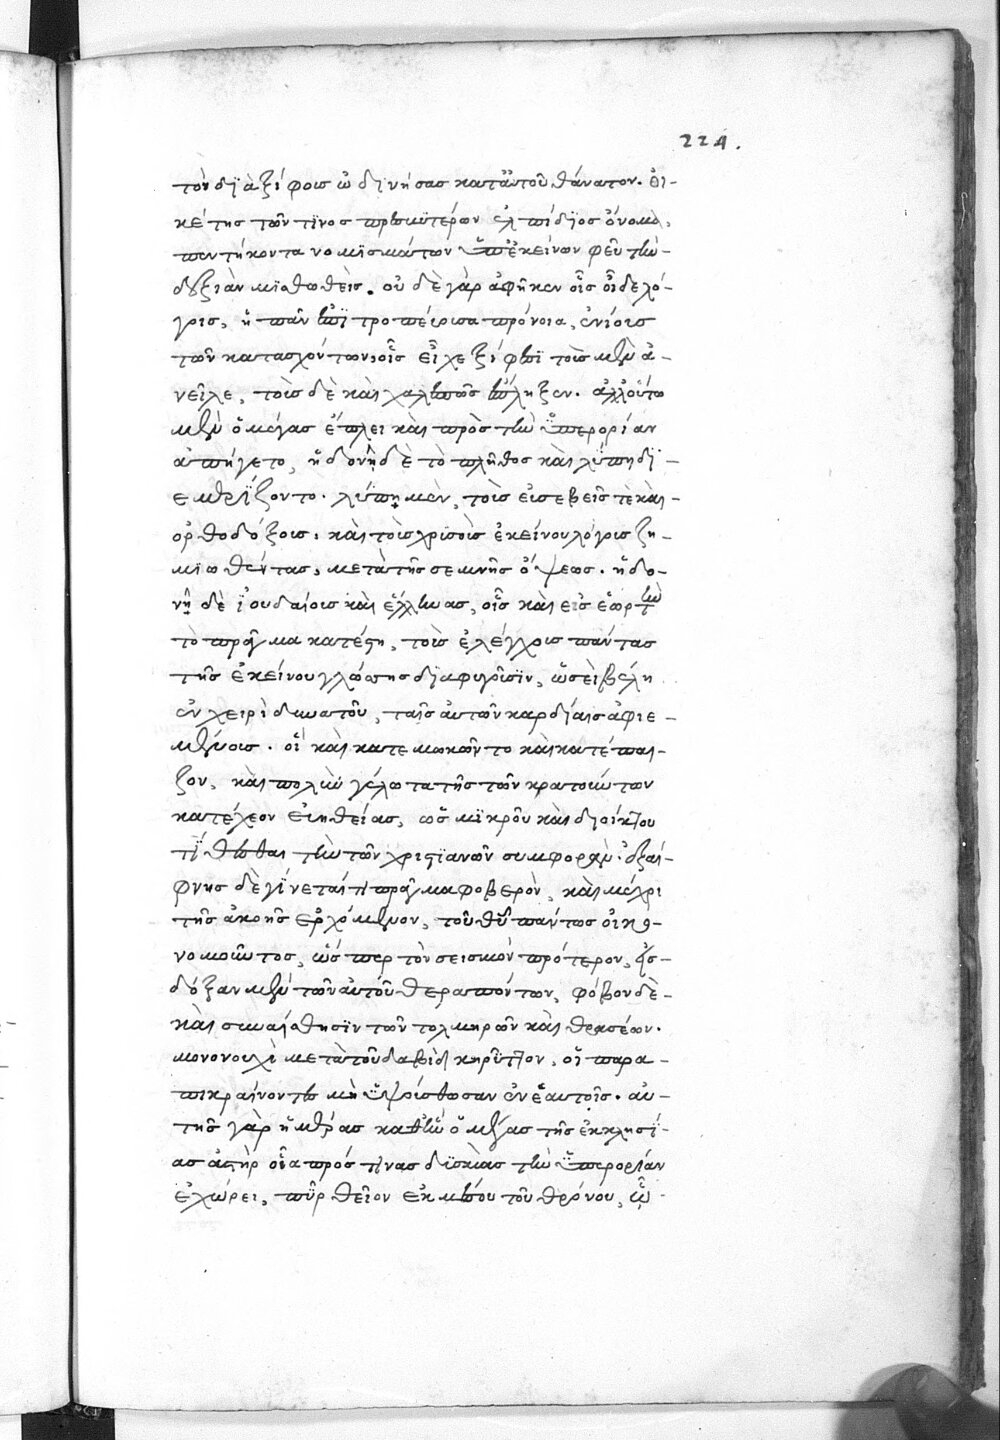 224.
τὸν διὰ ξίφους ὠδινήσας κατ' αὐτοῦ θάνατον. οἰ-
κέτης τῶν τινος πρεσβυτέρων ἐλπίδιος ὄνομα,
πεντήκοντα νομισμάτων ὑπ' ἐκείνων φεῦ τὴν
δεξιὰν μισθωθεὶς. οὐδὲ γὰρ ἀφῆκεν οἷς οἶδε λό-
γοις, ἡ πᾶν ἐπιτροπεύουσα πρόνοια, ἐνίους
τῶν κατασχόντων, οἷς εἶχε ξίφει τοὺς μὲν ἀ-
νεῖλε, τοὺς δὲ καὶ χαλεπῶς ἔπληξεν. ἀλλ' οὕτω
μὲν ὁ μέγας ἔπλει καὶ πρὸς τὴν ὑπερορίαν
ἀπήγετο, ἡδονῇ δὲ τὸ πλῆθος καὶ λύπῃ δι-
εμερίζοντο. λύπῃ μὲν, τοὺς εὐσεβεῖς τὲ καὶ
ὀρθοδόξους, καὶ τοὺς χρυσοῦς ἐκείνου λόγους ζη-
μιωθέντας, μετὰ τῆς σεμνῆς ὄψεως. ἡδο-
νῇ δὲ ἰουδαίους καὶ ἕλληνας, οἷς καὶ εἰς ἑορτὴν
τὸ πρᾶγμα κατέστη, τοὺς ἐλέγχους πάντας
τῆς ἐκείνου γλώττης διαφυγοῦσιν, ὡσεὶ βέλη
ἐν χειρὶ δυνατοῦ, ταῖς αὐτῶν καρδίαις ἀφιε-
μένους. οἳ καὶ κατεμωκῶντο καὶ κατέπαι-
ζον, καὶ πολὺν γέλωτα τῆς τῶν κρατούντων
κατέχεον εὐηθείας, ὡς μικροῦ καὶ δι' οἴκτου
τίθεσθαι τὴν τῶν χριστιανῶν συμφοράν. ἐξαί-
φνης δὲ γίνεταί τι πρᾶγμα φοβερὸν, καὶ μέχρι
τῆς ἀκοῆς ἐρχόμενον, τοῦ θυ πάντως οἰκο-
νομοῦντος, ὥσπερ τὸν σεισμὸν πρότερον, εἰς
δόξαν μὲν τῶν αὐτοῦ θεραπόντων, φόβον δὲ
καὶ συναίσθησιν τῶν τολμηρῶν καὶ θρασέων.
μονονουχὶ μετὰ τοῦ δαβὶδ κηρύττον, οἱ παρα-
πικραίνοντες μὴ ὑψούσθωσαν ἐν ἑαυτοῖς. αὐ-
τῆς γὰρ ἡμέρας καθ' ἣν ὁ μέγας τῆς ἐκκλησί-
ας ἀστὴρ οἷα πρός τινας δυσμὰς τὴν ὑπερορίαν
ἐχώρει, πῦρ θεῖον ἐκ μέσου τοῦ θρόνου, ᾧ